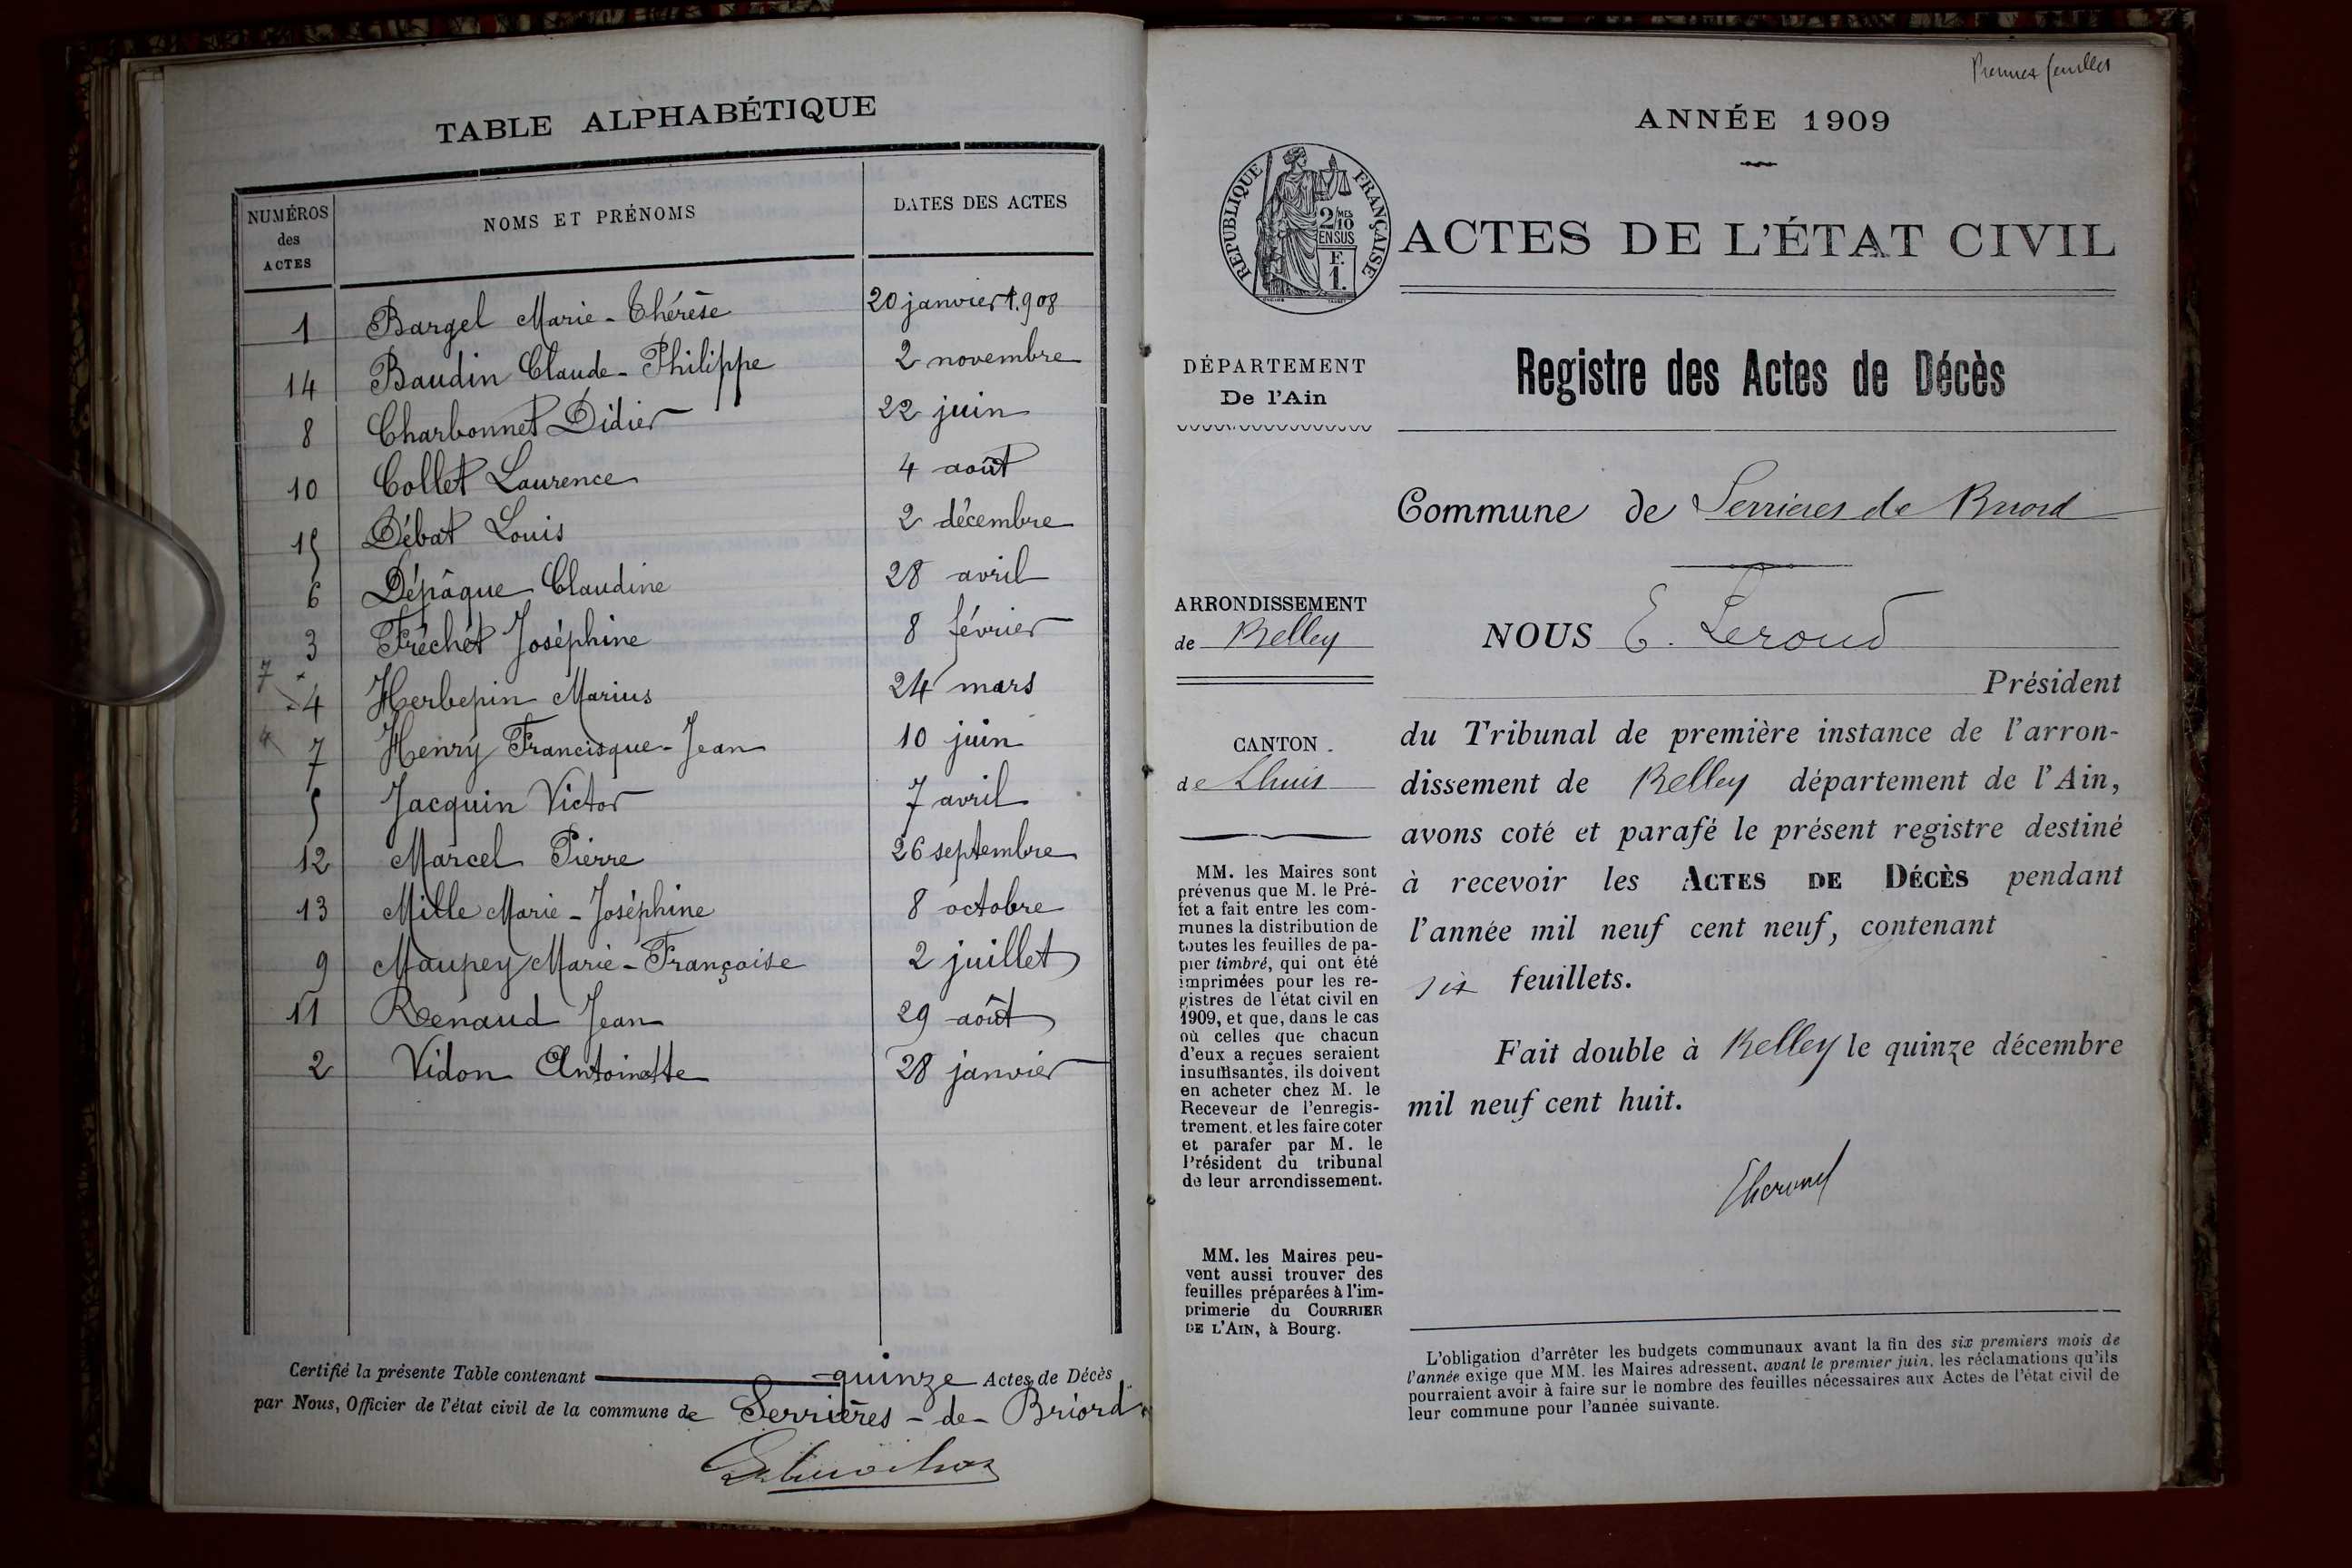 TABLE ALPHABÉTIQUE
NUMÉROS des ACTES NOMS ET PRÉNOMS DATES DES ACTES
1 Bargel Marie-Thérèse 20 janvier 1.908
14 Baudin Claude-Philippe 2 novembre
8 Charbonnet Didier 22 juin
10 Collet Laurence 4 août
15 Débat Louis 2 décembre
6 Dépâque Claudine 28 avril
3 Fréchet Joséphine 8 février
7 4 Herbepin Marius 24 mars
4 7 Henry Francisque-Jean 10 juin
5 Jacquin Victor 7 avril
12 Marcel Pierre 26 septembre
13 Mille Marie-Joséphine 8 octobre
9 Maupey Marie-Françoise 2 juillet
11 Renaud Jean 29 août
2 Vidon Antoinette 28 janvier
Certifié la présente Table contenant quinze Actes de Décès
par Nous, Officier de l'état civil de la commune de Serrières-de-Briord
ANNÉE 1909
RÉPUBLIQUE FRANÇAISE
2/10 MES
EN SUS
F.
1.
ACTES DE L'ÉTAT CIVIL
DÉPARTEMENT
De l'Ain
ARRONDISSEMENT
de Belley
CANTON
de Lhuis
MM. les Maires sont
prévenus que M. le Pré-
fet a fait entre les com-
munes la distribution de
toutes les feuilles de pa-
pier timbré, qui ont été
imprimées pour les re-
gistres de l'état civil en
1909, et que, dans le cas
où celles que chacun
d'eux a reçues seraient
insuffisantes, ils doivent
en acheter chez M. le
Receveur de l'enregis-
trement, et les faire coter
et parafer par M. le
Président du tribunal
de leur arrondissement.
MM. les Maires peu-
vent aussi trouver des
feuilles préparées à l'im-
primerie du COURRIER
DE L'AIN, à Bourg.
Registre des Actes de Décès
Commune de Serrieres de Briord
NOUS E. Peroud
Président
du Tribunal de première instance de l'arron-
dissement de Belley département de l'Ain,
avons coté et parafé le présent registre destiné
à recevoir les ACTES DE DÉCÈS pendant
l'année mil neuf cent neuf, contenant
six feuillets.
Fait double à Belley le quinze décembre
mil neuf cent huit.
L'obligation d'arrêter les budgets communaux avant la fin des six premiers mois de
l'année exige que MM. les Maires adressent, avant le premier juin, les réclamations qu'ils
pourraient avoir à faire sur le nombre des feuilles nécessaires aux Actes de l'état civil de
leur commune pour l'année suivante.